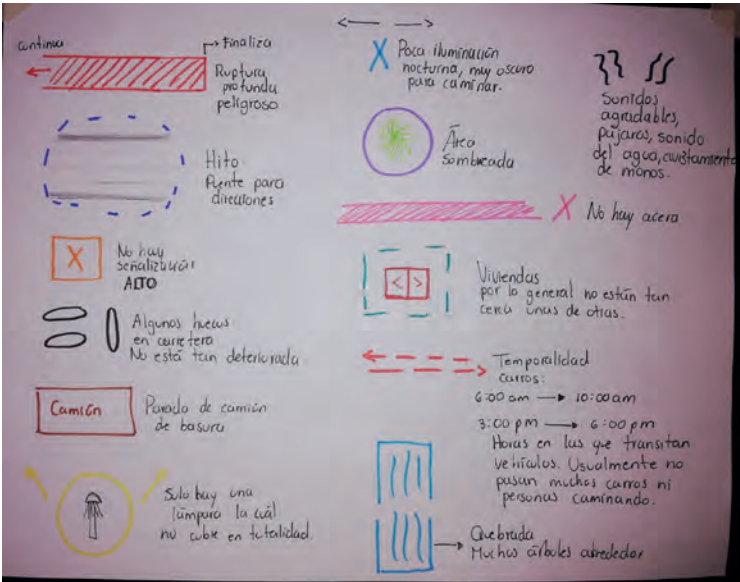 continua
Finaliza
Ruptura
profunda
peligroso
Hito
Puente para
direciones
X
No hay
señalización
ALTO
Algunos huecos
en carretera
No está tan deteriorada.
Camión
Parada de camión
de basura
Solo hay una
lámpara la cuál
no cubre en totalidad.
X
Poca iluminación
nocturna, muy oscuro
para caminar.
Área
sombreada
X
No hay acera
Viviendas
por lo general no están tan
cerca unas de otras.
Temporalidad
carros:
6:00 am → 10:00 am
3:00 pm → 6:00 pm
Horas en las que transitan
vehículos. Usualmente no
pasan muchos carros ni
personas caminando.
Quebrada
Muchos árboles alrededor
Sonidos
agradables,
pájaros, sonido
del agua, avistamiento
de monos.